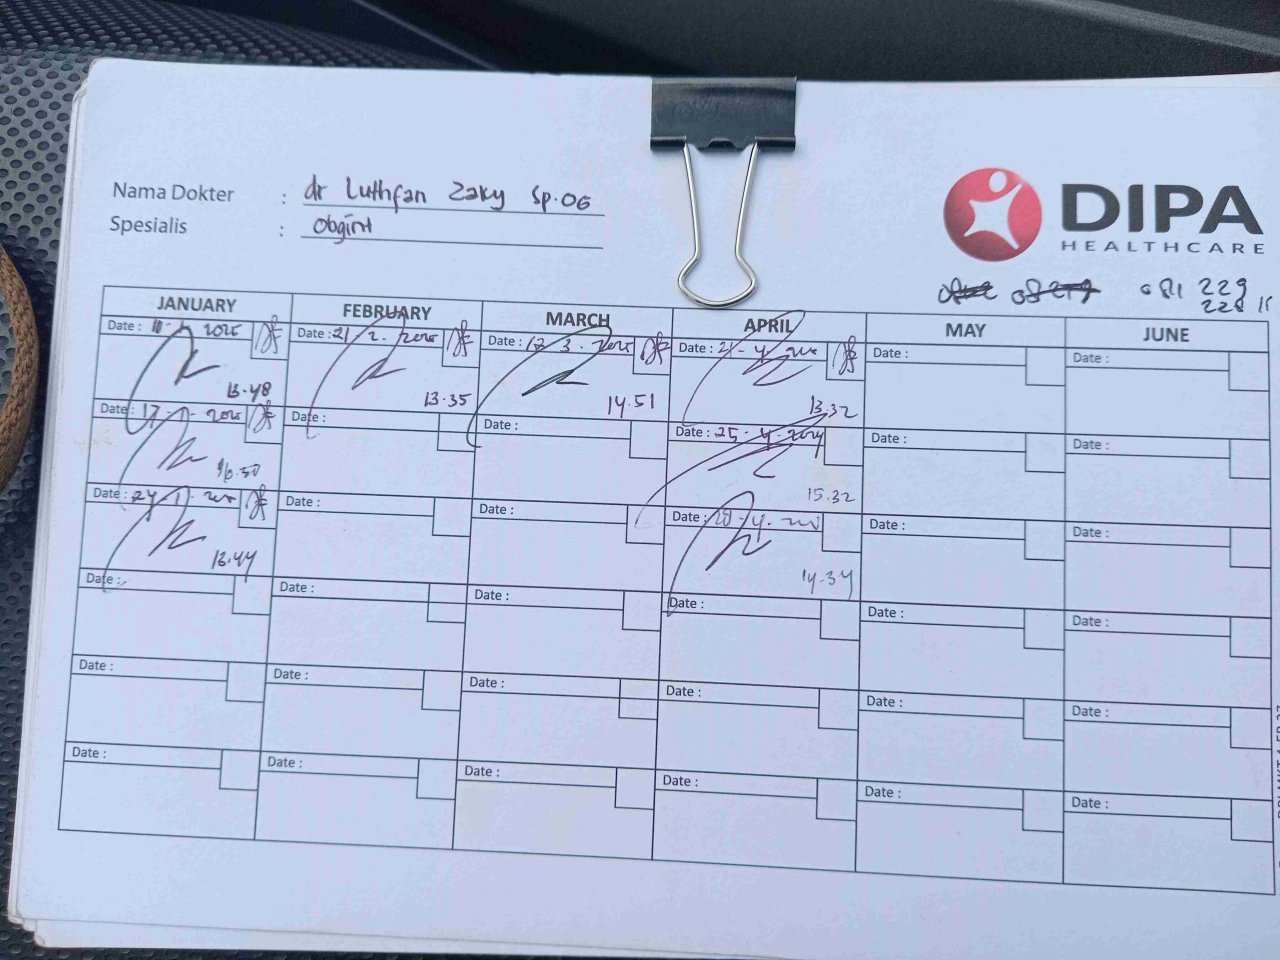 Nama Dokter : dr Luthfan Zaky Sp.OG
Spesialis : Obgin
DIPA
HEALTHCARE
0811 229
228
JANUARY FEBRUARY MARCH APRIL MAY JUNE
Date : 10-1-2025 Date : 21-2-2025 Date : 12-3-2025 Date : 21-4- Date : Date :
13.48 13.35 14.51 13.32
Date : 17-1-2025 Date : Date : Date : 25-4-2024 Date : Date :
16.50 15.32
Date : 24-1- Date : Date : Date : 28-4- Date : Date :
13.44 14.34
Date : Date : Date : Date : Date : Date :
Date : Date : Date : Date : Date : Date :
Date : Date : Date : Date : Date : Date :